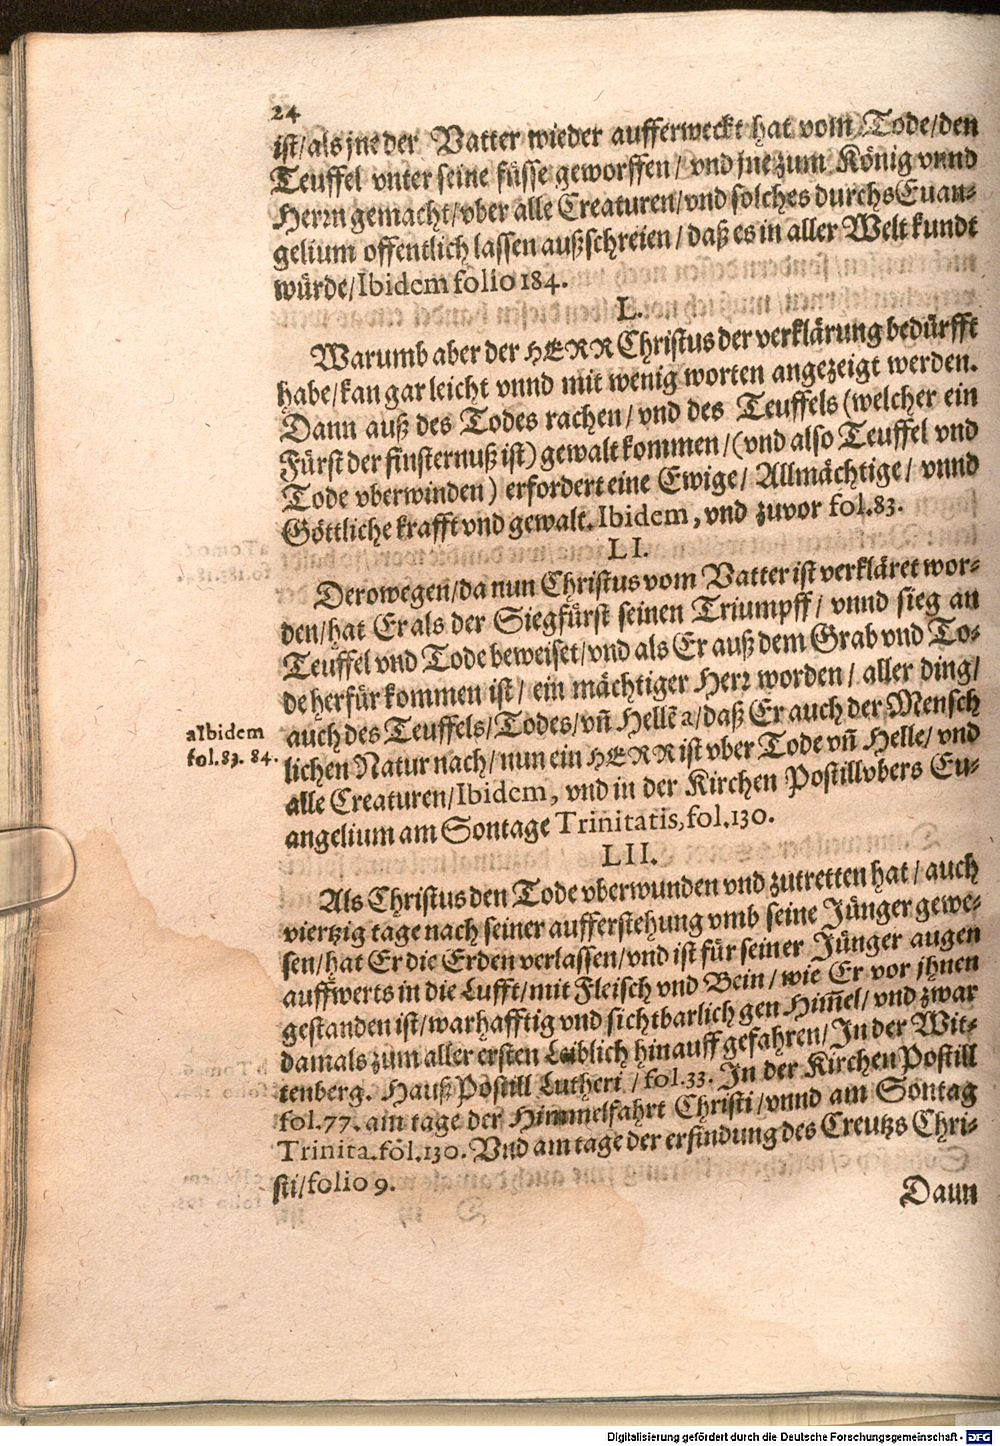 24
ist/als jne der Vatter wieder aufferweckt hat vom Tode/den
Teuffel vnter seine füsse geworffen/ vnd jne zum König vnnd
Herrn gemacht/vber alle Creaturen/vnd solches durchs Euan-
gelium offentlich lassen außschreien/ daß es in aller Welt kundt
würde/Ibidem folio 184.
L.
Warumb aber der HERR Christus der verklärung bedürfft
habe/kan gar leicht vnnd mit wenig worten angezeigt werden.
Dann auß des Todes rachen/ vnd des Teuffels (welcher ein
Fürst der finsternuß ist) gewalt kommen/(vnd also Teuffel vnd
Tode vberwinden) erfordert eine Ewige/ Allmächtige/ vnnd
Göttliche krafft vnd gewalt. Ibidem, vnd zuvor fol.83.
LI.
Derowegen/da nun Christus vom Vatter ist verkläret wor-
den/hat Er als der Siegfürst seinen Triumpff/ vnnd sieg an
Teuffel vnd Tode beweiset/vnd als Er auß dem Grab vnd To-
de herfür kommen ist/ ein mächtiger Herr worden/ aller ding/
auch des Teuffels/Todes/vñ Hellẽ a/daß Er auch der Mensch
lichen Natur nach/ nun ein HERR ist vber Tode vñ Helle/ vnd
alle Creaturen/Ibidem, vnd in der Kirchen Postill vbers Eu-
angelium am Sontage Trinitatis, fol.130.
a Ibidem
fol.83. 84.
LII.
Als Christus den Tode vberwunden vnd zutretten hat/ auch
viertzig tage nach seiner aufferstehung vmb seine Jünger gewe-
sen/hat Er die Erden verlassen/vnd ist für seiner Jünger augen
auffwerts in die Lufft/mit Fleisch vnd Bein/ wie Er vor jhnen
gestanden ist/warhafftig vnd sichtbarlich gen Him̃el/ vnd zwar
damals zum aller ersten Leiblich hinauff gefahren/ In der Wit-
tenberg. Hauß Postill Lutheri / fol.33. In der Kirchen Postill
fol.77. am tage der Himmelfahrt Christi/vnnd am Sontag
Trinita. fol.130. Vnd am tage der erfindung des Creutzs Chri-
sti/folio 9.
Dann
Digitalisierung gefördert durch die Deutsche Forschungsgemeinschaft - DFG